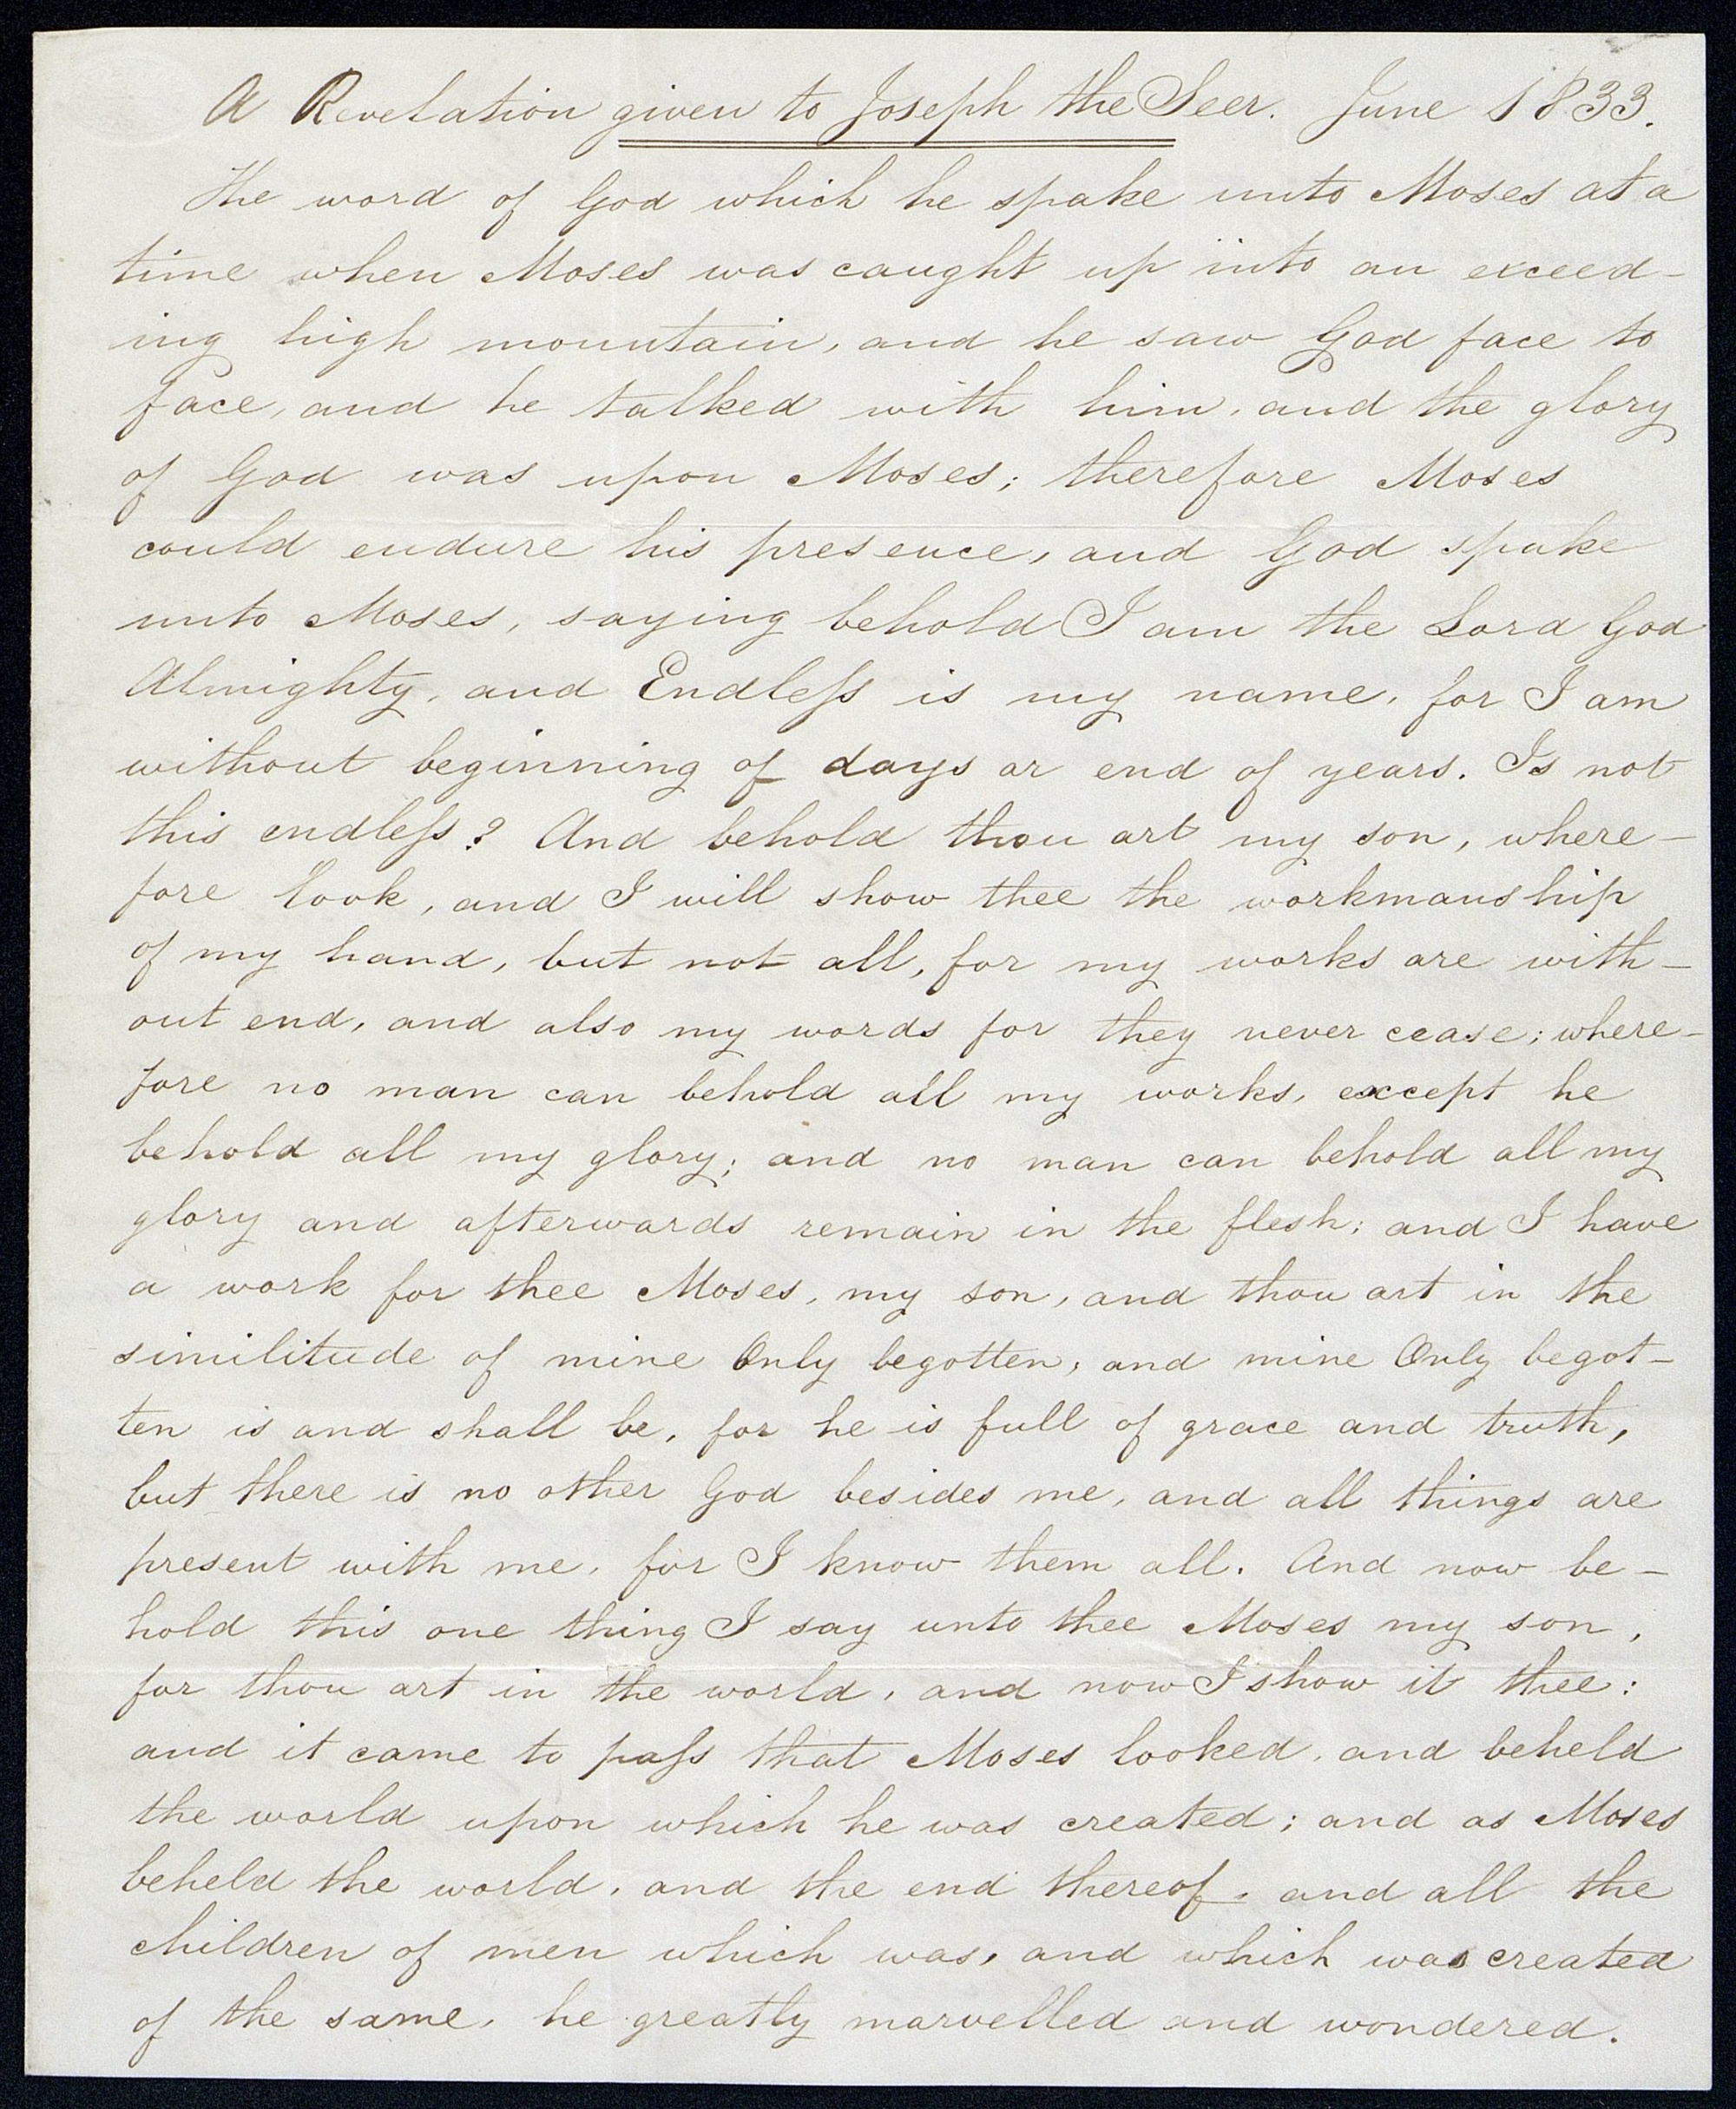 A Revelation given to Joseph the Seer. June 1833.
The word of God which he spake unto Moses at a
time when Moses was caught up into an exceed-
ing high mountain, and he saw God face to
face, and he talked with him, and the glory
of God was upon Moses; therefore Moses
could endure his presence, and God spake
unto Moses, saying behold I am the Lord God
Almighty, and Endleſs is my name, for I am
without beginning of days or end of years. Is not
this endleſs? And behold thou art my son, where-
fore look, and I will show thee the workmanship
of my hand, but not all, for my works are with-
out end, and also my words for they never cease; where-
fore no man can behold all my works, except he
behold all my glory; and no man can behold all my
glory and afterwards remain in the flesh; and I have
a work for thee Moses, my son, and thou art in the
similitude of mine Only begotten, and mine Only begot-
ten is and shall be, for he is full of grace and truth,
but there is no other God besides me, and all things are
present with me, for I know them all. And now be-
hold this one thing I say unto thee Moses my son,
for thou art in the world, and now I show it thee:
and it came to paſs that Moses looked, and beheld
the world upon which he was created; and as Moses
beheld the world, and the end thereof, and all the
children of men which was, and which was created
of the same, he greatly marvelled and wondered.